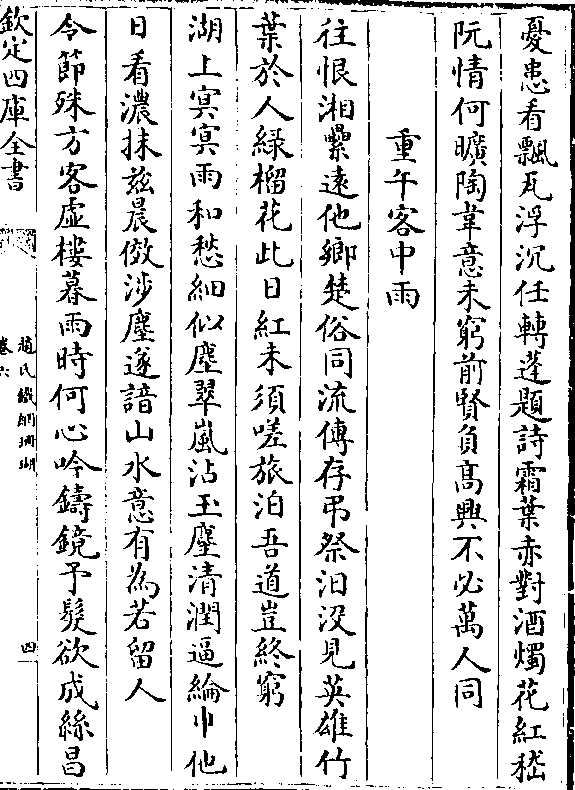 憂患看飄瓦浮沉任轉蓬題詩霜葉赤對酒燭花紅嵇
阮情何曠陶韋意未窮前賢負髙興不必萬人同
重午客中雨
往恨湘纍逺他鄉楚俗同流傳存弔祭汨没見英雄竹
葉於人緑榴花此日紅未須嗟旅泊吾道豈終窮
湖上㝠㝠雨和愁細似塵翠嵐沾玉麈清潤逼綸巾他
日看濃抹兹晨儆涉塵遂諳山水意有為若留人
令節殊方客虚樓暮雨時何心吟鑄鏡予髮欲成絲昌
欽定四庫全書
趙氏鐵網珊瑚
卷六
四